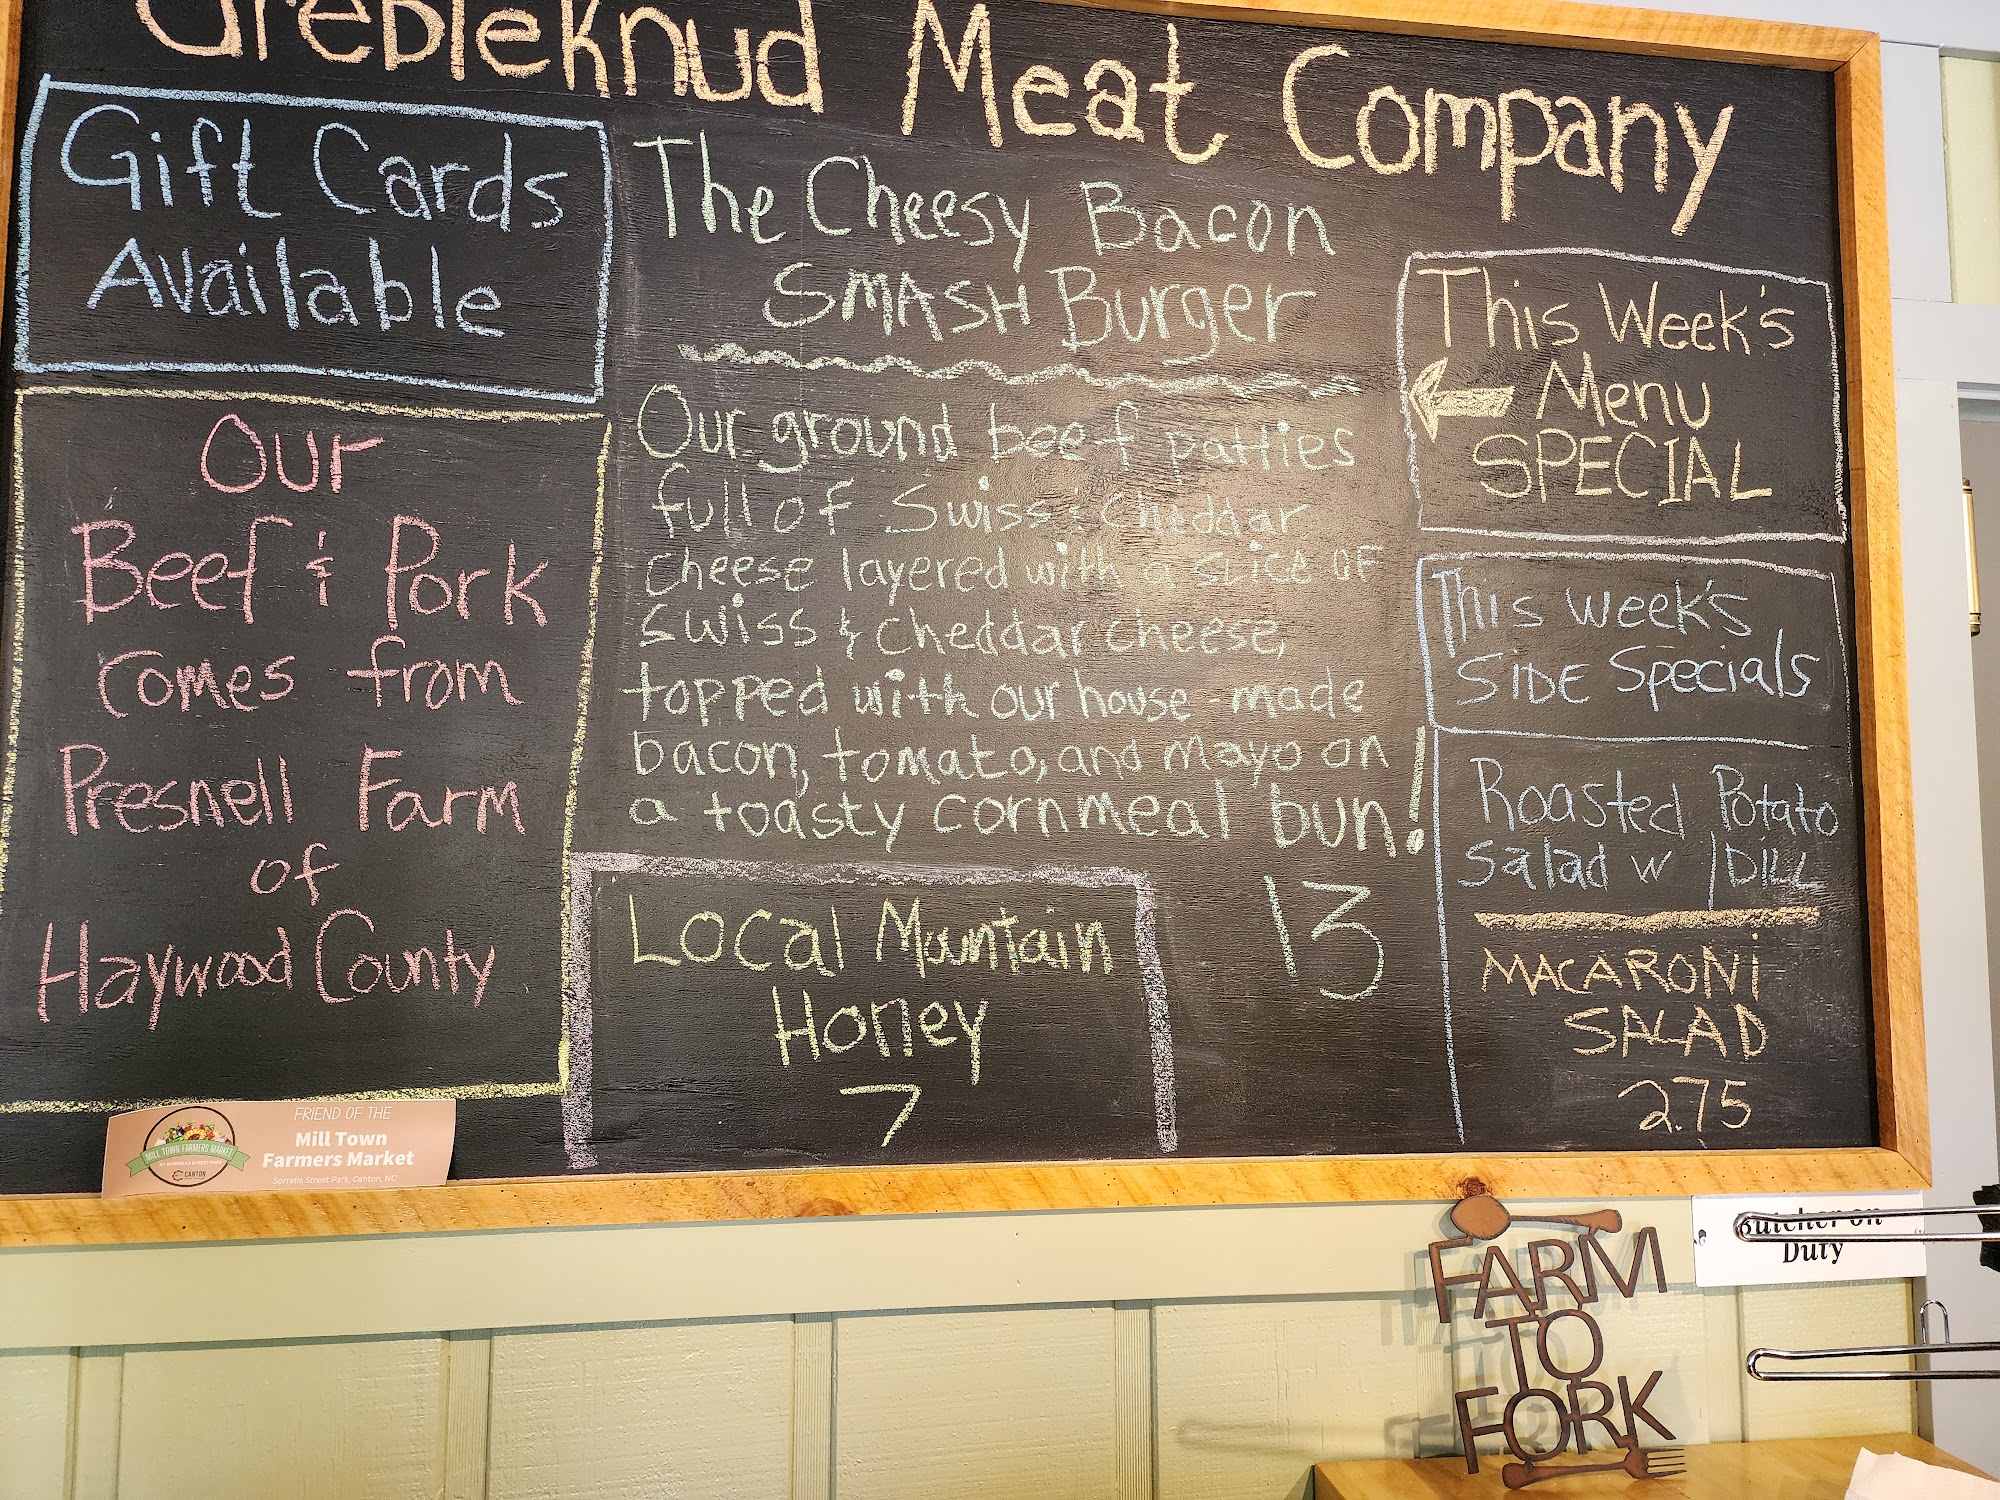 Grebleknud Meat Company
Gift Cards
Available
Our
Beef & Pork
comes from
Presnell Farm
of
Haywood County
The Cheesy Bacon
SMASH Burger
Our ground beef patties
full of Swiss & Cheddar
cheese layered with a slice of
swiss & cheddar cheese,
topped with our house-made
bacon, tomato, and mayo on
a toasty cornmeal bun!
13
Local Mountain
Honey
7
This Week's
Menu
SPECIAL
This week's
SIDE Specials
Roasted Potato
Salad w/ DILL
MACARONi
SALAD
2.75
FRIEND OF THE
Mill Town
Farmers Market
Sorrells Street Park, Canton, NC
MILL TOWN FARMERS MARKET
AT SORRELLS STREET PARK
CANTON
Butcher on
Duty
FARM
TO
FORK